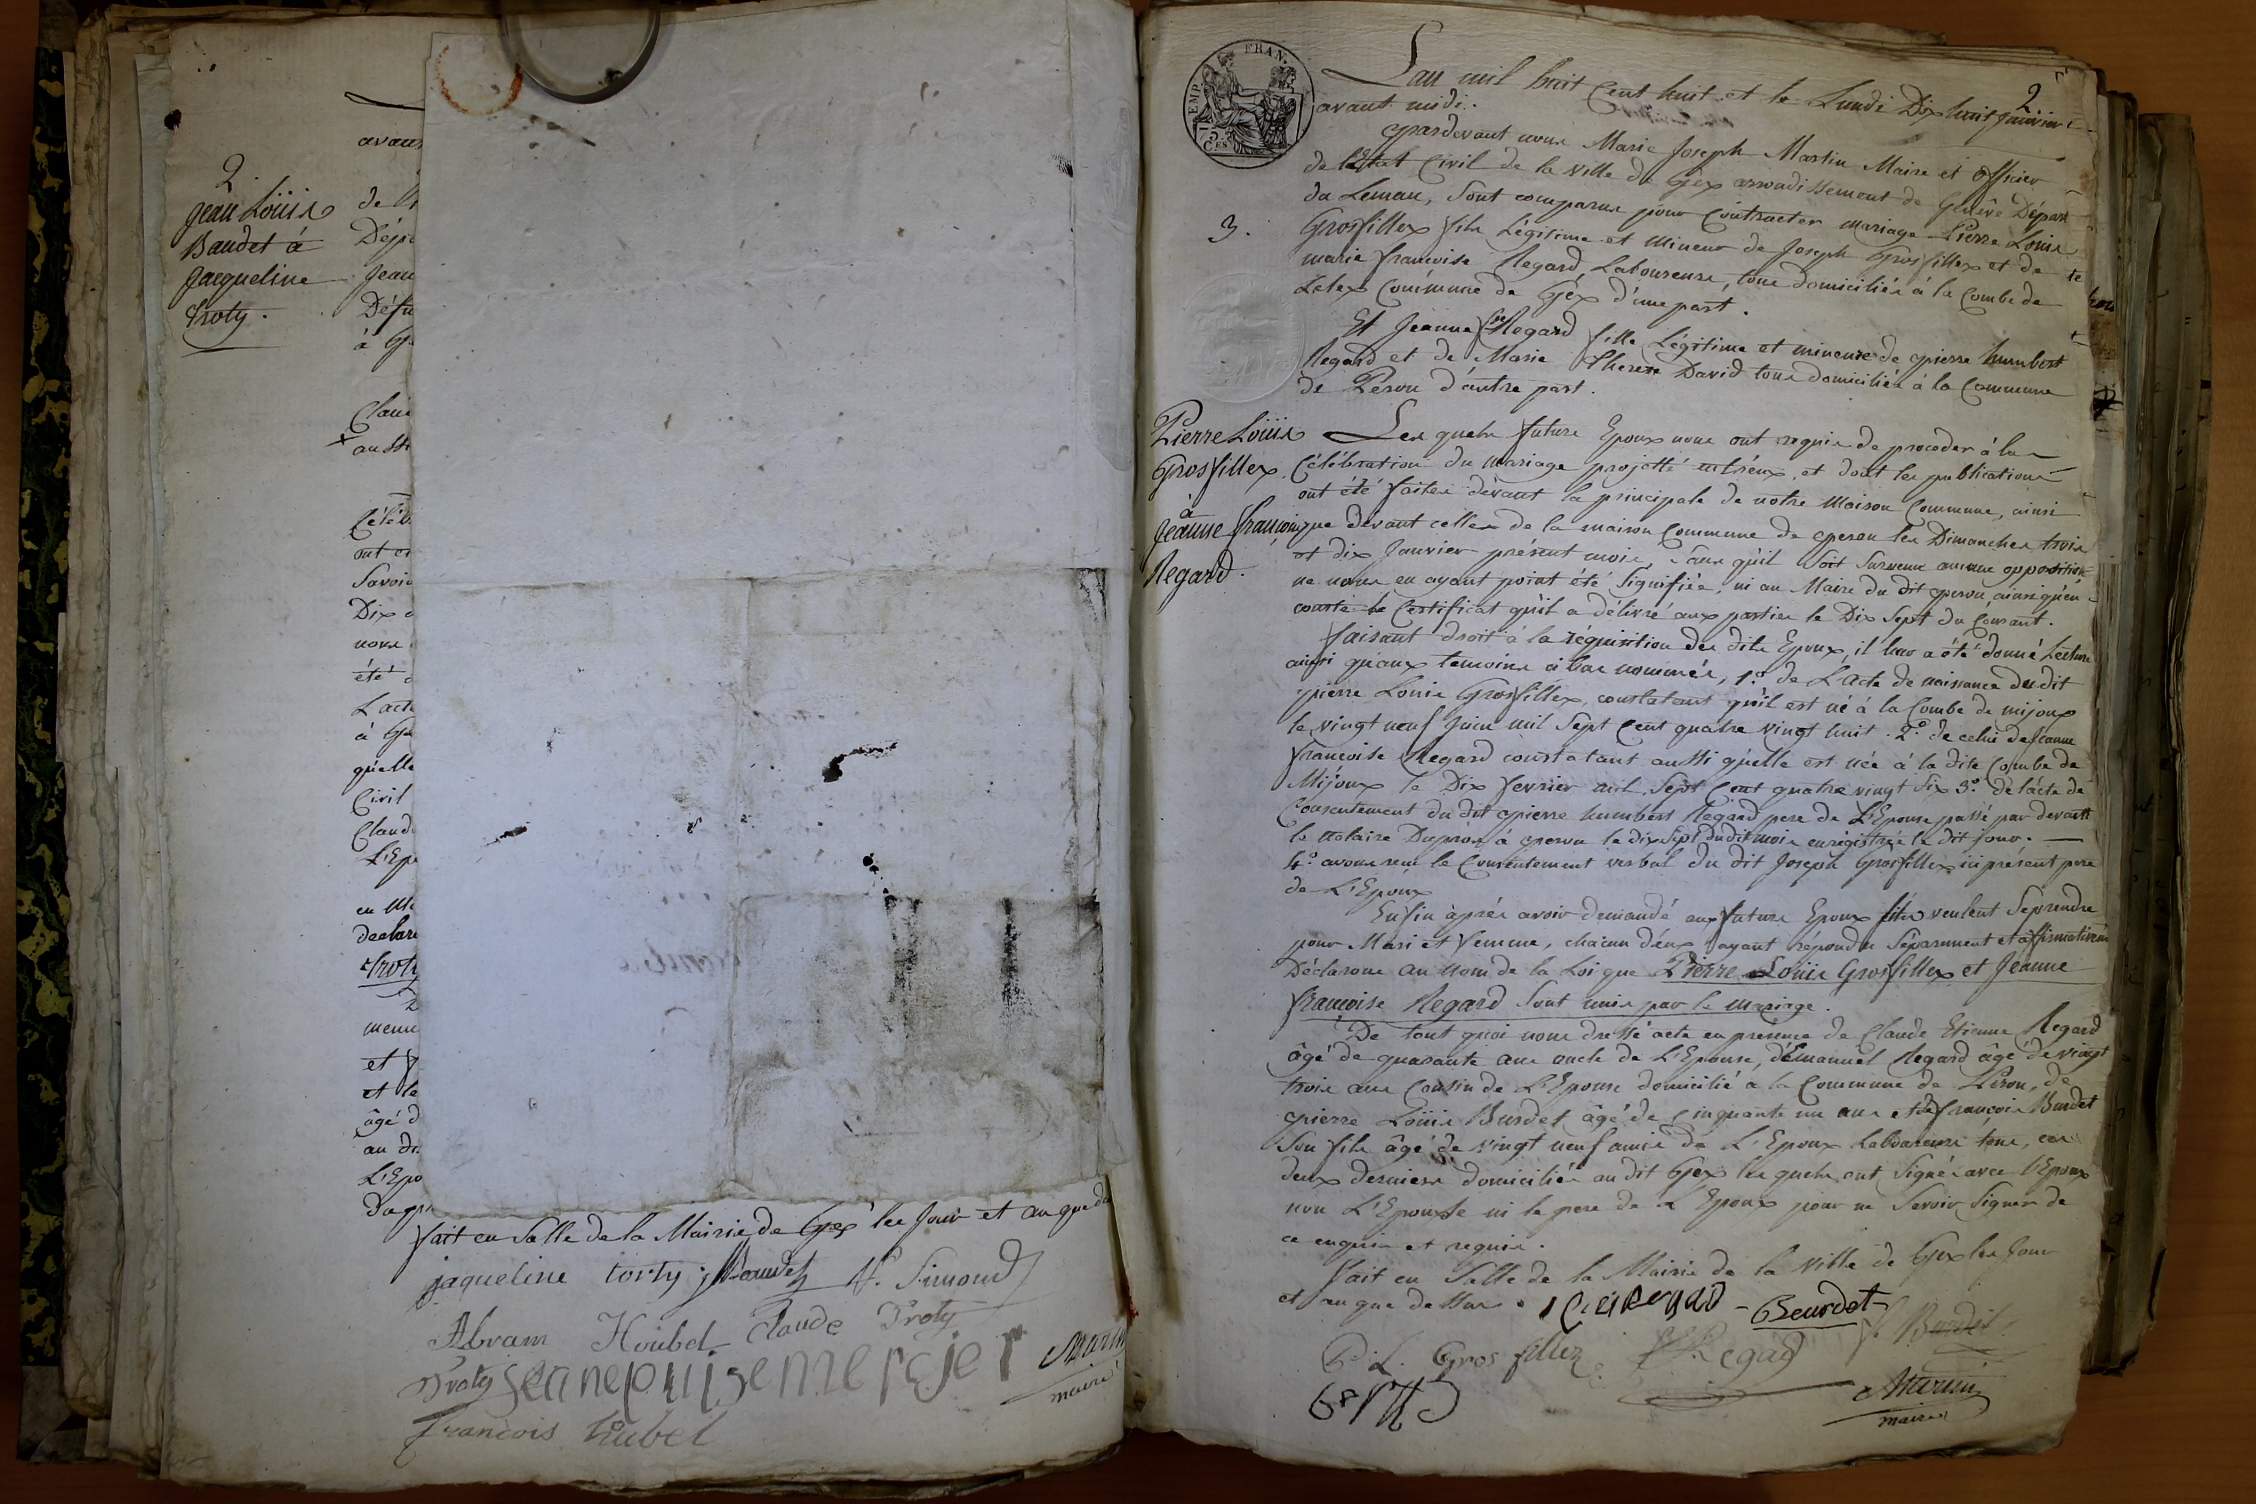 2.
Jean Loüis
Baudet à
Jacqueline
Troty.
avant
de
Jean
à
aussi
Savoir
Dix
nous
été
à
quelle
Civil
Claude
en
Troty
et
et le
âgé
au
fait en Salle de la Mairie de Gex les Jour et an que d
jaqueline torty Baudet f. Simond
Abram Houbel Claude Troty
Troty jeanepuisemerejer Martin
maire
francois hubel
EMP. FRAN.
75
CES
2
L'an mil huit Cent huit et le Lundi Dix huit Janvier
avant midi.
pardevant nous Marie Joseph Martin Maire et officier
de l'Etat Civil de la Ville de Gex arrondissement de Genêve Départ
du Leman, Sont comparus pour Contracter mariage Pierre Louis
3.
Grosfillex fils Légitime et mineur de Joseph Grosfillex et de
marie francoise Regard Laboureurs, tous domiciliés à la Combe de
Lelex Commune de Gex d'une part.
Et Jeanne fse Regard fille Légitime et mineure de pierre humbert
Regard et de Marie Therese David tous domiciliés à la Commune
de Peron d'autre part.
Pierre Loüis
Grosfillex
à
Jeanne françoise
Regard.
Les quels futurs Epoux nous ont requis de proceder à la
Célébration du mariage projetté entr'eux, et dont les publications
ont été faites devant la principale de notre Maison Commune, ainsi
que devant celles de la maison Commune de peron les Dimanches trois
et dix Janvier présent mois, sans qu'il Soit Survenu aucune opposition
ne nous en ayant point été Signifiée, ni au Maire du dit peron, ainsi qu'en
conste le Certificat qu'il a délivré aux parties le Dix Sept du Courant.
faisant droit à la réquisition des dits Epoux, il leur a été donné Lecture
ainsi qu'aux temoins ci bas nommés, 1.° de L'acte de naissance du dit
pierre Louis Grosfillex, constatant qu'il est né à la Combe de mijoux
le vingt neuf Juin mil Sept Cent quatre vingt huit. 2.° de celui de Jeanne
francoise Regard constatant aussi qu'elle est née à la dite Combe de
Mijoux le Dix fevrier mil Sept Cent quatre vingt Six 3.° de l'acte de
Consentement du dit pierre humbert Regard pere de L'Epouse passé par devant
le Notaire Duproz à peron le dix Sept du dit mois enrégistré le dit jour.
4.° avons reçu le Consentement verbal du dit Joseph Grosfillex ici présent pere
de L'Epoux
Enfin après avoir demandé aux futurs Epoux s'ils veulent Se prendre
pour Mari et Femme, chacun d'eux ayant répondu Séparement et affirmativem
Déclarons au nom de la Loi que Pierre Loüis Grosfillex et Jeanne
françoise Regard Sont unis par le mariage.
De tout quoi nous dressé acte en présence de Claude Etienne Regard
âgé de quarante ans oncle de L'Epouse, d'Emanuel Regard âgé de vingt
trois ans Cousin de L'Epouse domicilié à la Commune de Péron, de
pierre Loüis Burdet âgé de Cinquante un ans et de françois Burdet
Son fils âgé de vingt neuf amis de L'Epoux Laboureurs tous, ces
deux derniers domiciliés au dit Gex les quels ont Signés avec l'Epoux
non L'Epouse ni le pere de L'Epoux pour ne Savoir Signer de
ce enquis et requis.
fait en Salle de la Mairie de la Ville de Gex les Jour
et an que dessus. Regad Beurdet
P. L. Gros fillez Regad f. Burdet
Martin
maire